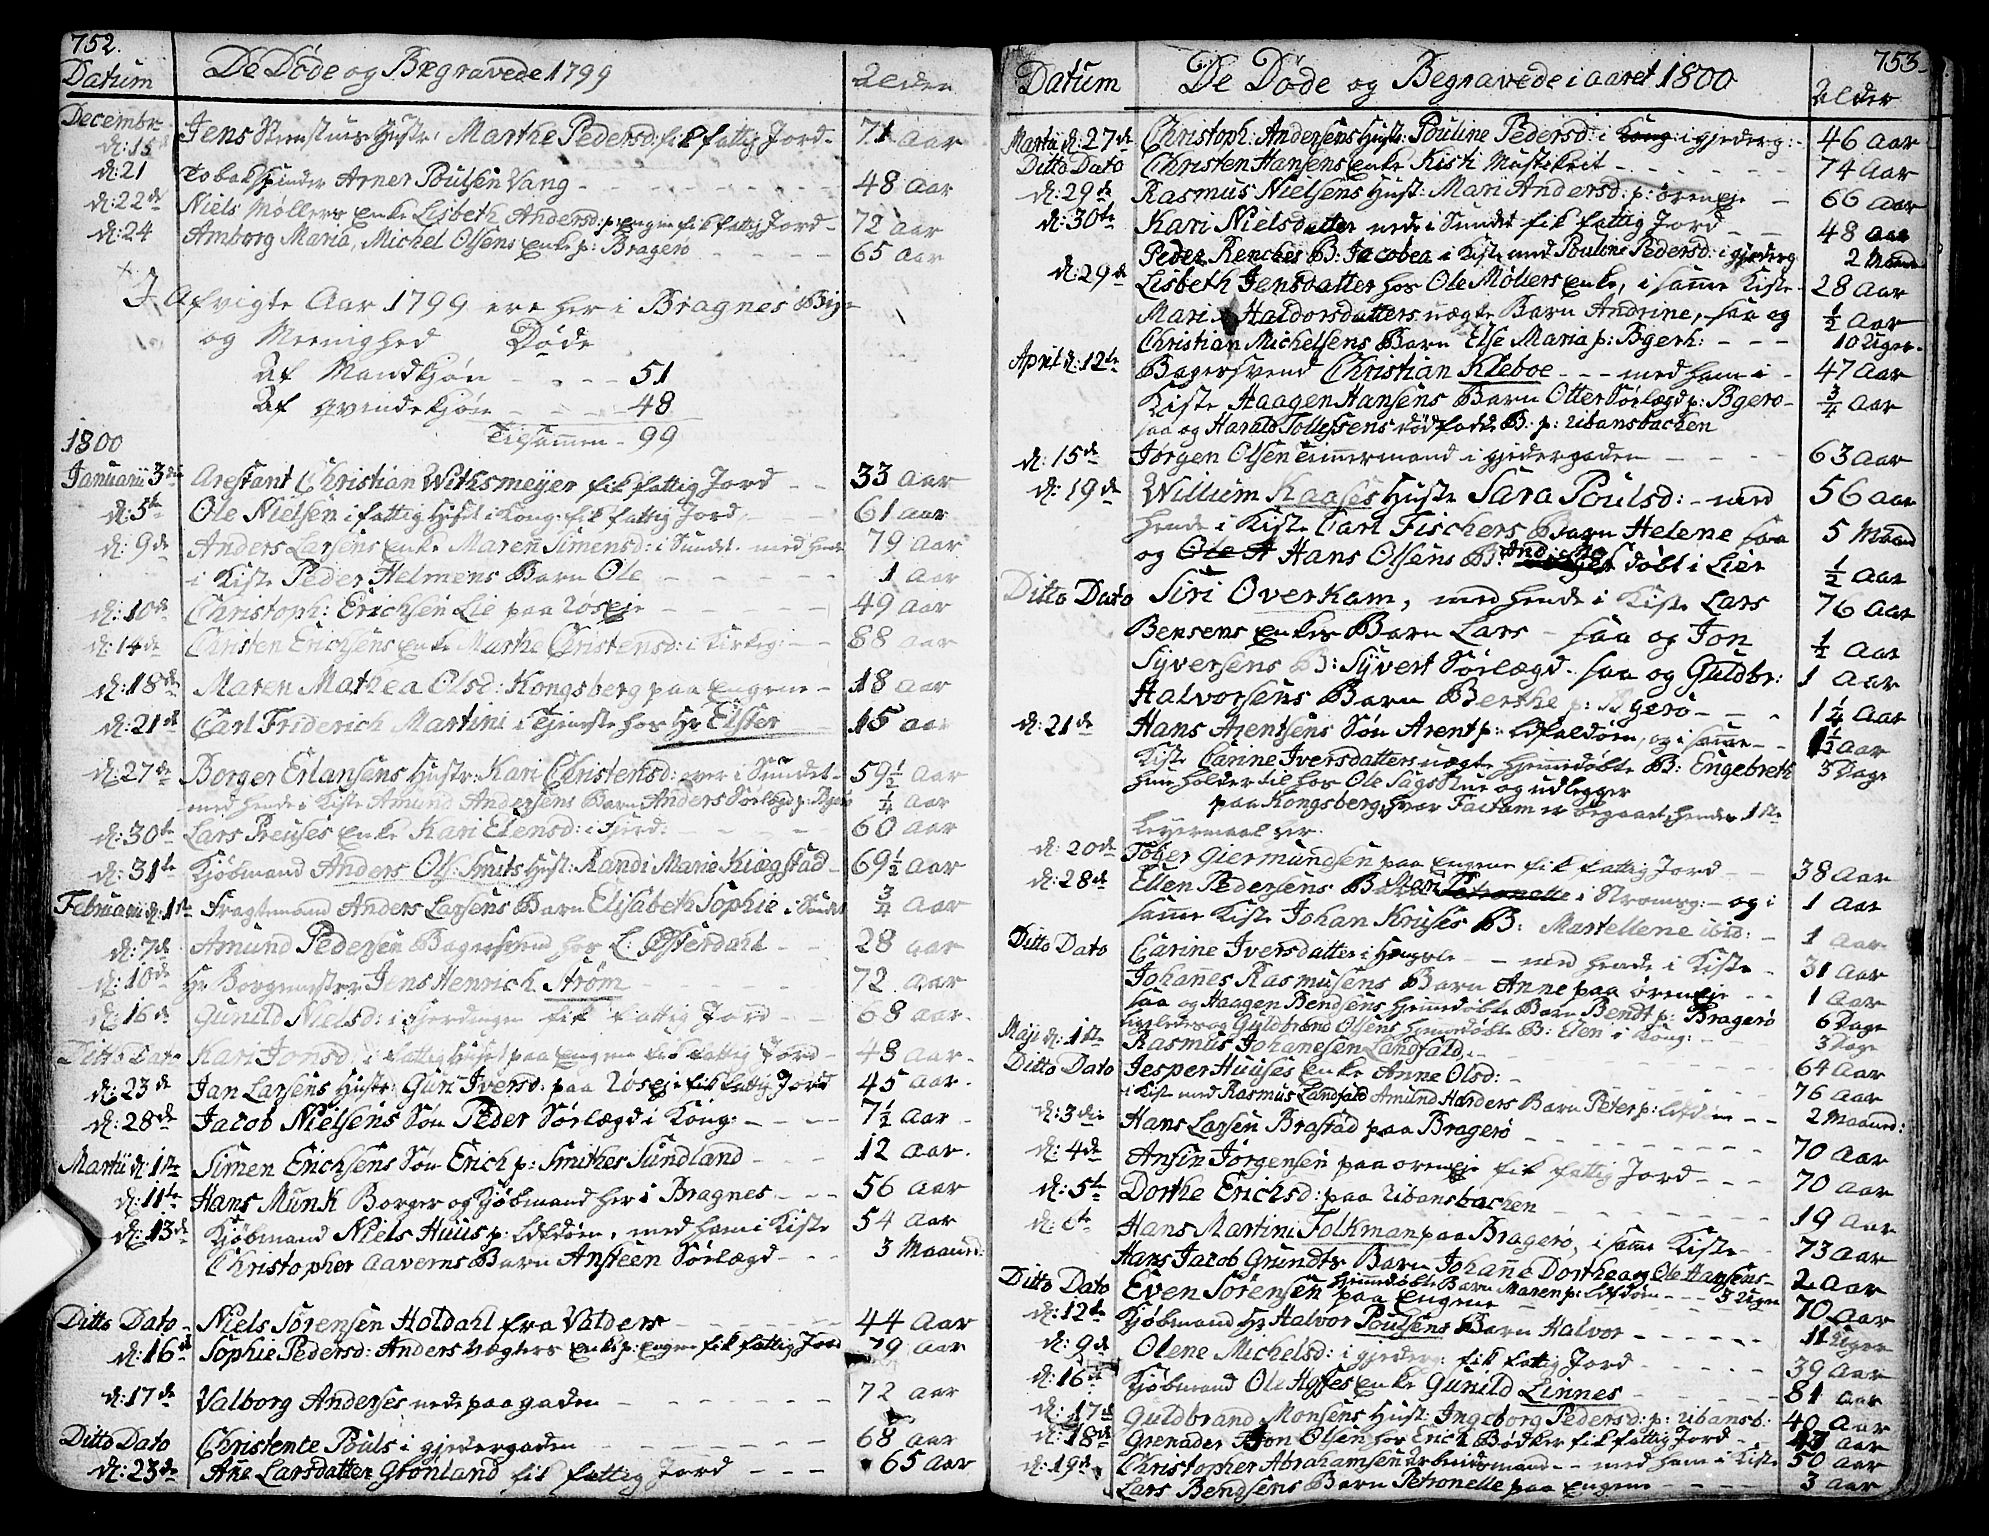 752.
Datum De Døde og Begravede 1799 Alder
Decembr
d: 15 Jens Hustr: Marthe Pedersd: fik fattig Jord - 71 Aar
d: 21 Tobakspinder Arner Poulsen Vang - 48 Aar
d: 22de Niels Møllers Enke Lisbeth Andersd: p: Engene fik fattig Jord - 72 Aar
d: 24 Amborg Maria, Michel Olsens Enke p: Bragerø 65 Aar
I Afvigte Aar 1799 ere her i Bragnes Bye
og Meenighed Døde
Af Mandkjøn - - - 51
Af Qvindekjøn - - - 48
Tilsammen - 99
1800
Januarii 3die Arestant Christian Withsmeyer fik fattig Jord - - 33 Aar
d: 5te Ole Nielsen i fattig Huset i Kong: fik fattig Jord 61 Aar
d: 9de Anders Larsens Enke Maren Simensd: i Sundet. med hende 79 Aar
i Kiste Peder Helmens Barn Ole - - - 1 Aar
d: 10de Christoph: Erichsen Lie paa Løseje - - - 49 Aar
d: 14de Christen Erichsens Enke Marthe Christensd: i Kirkeg: - - 88 Aar
d: 18de Maren Mathea Olsd: Kongsberg paa Engene - 18 Aar
d: 21de Carl Friderich Martini i Tjeneste hos Hr Elster 15 Aar
d: 27de Borger Erlansens Hustr: Kari Christensd: over i Sundet - 59 1/2 Aar
med hende i Kiste Amund Andersens Barn Anders Sørlægd p: Bgerø 1/4 Aar
d: 30te Lars Preuses Enke Kari Elensd: i Fjerd: 60 Aar
d: 31te Kjøbmand Anders Ols: Smits Hust: Randi Marie Kiøgstad - 69 1/2 Aar
Februarii d: 1te Fragtemand Anders Larsens Barn Elisabeth Sophie i Sundet 3/4 Aar
d: 7de Amund Pedersen Bagersvend hos L: Østerdahl - - 28 Aar
d: 10de Hr Borgemester Jens Henrich Strøm 72 Aar
d: 16de Gunild Nielsd: i Fjerdingen fik fattig Jord - - 68 Aar.
Ditto Dato Kari Jonsd: i fattig Huset paa Engene fik fattig Jord - 48 Aar.
d: 23de Jan Larsens Hustr: Guri Iversd: paa Løseje fik fattig Jord 45 Aar.
d: 28de Jacob Nielsens Søn Peder Sørlægd i Kong: - - - 7 1/2 Aar
Martii d: 1te Simen Erichsens Søn Erich p: Smithes Sundland - - - 12 Aar.
d: 11te Hans Munk Borger og Kjøbmand her i Bragnes - - - 56 Aar
d: 13de Kjøbmand Niels Huus p: , med ham i Kiste 54 Aar
Christopher Aaverns Barn Ansteen Sørlægd - - - 3 Maaned:
Ditto Dato - Niels Sørensen Holdahl fra Valders - - - 44 Aar
d: 16de Sophie Pedersd: Anders Vægters Enke p: Engene fik fattig Jord 79 Aar
d: 17de Valborg Anderses nede paa gaden - - - 72 Aar
Ditto Dato Christence Pouls i gjedergaden - - - 68 Aar
d: 23de Anne Larsdatter Grønland fik fattig Jord - - - 65 Aar
753.
Datum De Døde og Begravede i aaret 1800 Alder
Martii d: 27de Christoph: Andersens Hust: Pouline Pedersd: i Kong i gjederg: - 46 Aar
Ditto Dato Christen Hansens Enke Kisti - - - 74 Aar
d: 29de Rasmus Nielsens Hust: Mari Andersd: p: øreneje - 66 Aar
d: 30te Kari Nielsdatter nede i Sundet fik fattig Jord - - 48 Aar
Peder Renches B: Jacobea i Kiste med Pouline Pedersd: i gjederg 2 Maan
d: 29de Lisbeth Jensdatter hos Ole Møllers Enke, i samme Kiste - 28 Aar
Mari Haldorsdatters uægte Barn Andrine, saa og 1/2 Aar
Christian Michelsens Barn Else Maria p: Bgerh: - - - 10 Uger.
April d: 12te Bagersvend Christian Kleboe - - - med ham i - 47 Aar
Kiste Haagen Hansens Barn Otter Sørlægd p: Bgerø - 3/4 Aar
saa og Harald Tollefsens dødfødte B: p: Ubansbachen
d: 15de Jørgen Olsen Timmermand i gjedergaden - - - 63 Aar
d: 19de Willium Kaases Hustr Sara Poulsd: - med 56 Aar
hende i Kiste Carl Fischers Barn Helene saa 5 Maaned
og Ole A Hans Olsens B: døbt i Lier 1/2 Aar
Ditto Dato Siri Overkam, med hende i Kiste Lars 76 Aar
Bensens Enkes Barn Lars - saa og Jon 1/2 Aar
Syversens B: Syvert Sørlægd - saa og Guldbr: 1 Aar
Halvorsens Barn Berthe p: Bgerø - - - 1 1/4 Aar
d: 21de Hans Arentsens Søn Arent p: , og i samme - - 1 1/2 Aar
Kiste Carine Iversdatters uægte hjemedøbte B: Engebreth 3 Dage
hun holder til hos Ole Sags Stue og udlegger
paa Kongsberg, hvor Factum er begaaet, hendes 1ste
Leyermaal her.
d: 20de Tolger Giermundsen paa Engene fik fattig Jord - - 38 Aar
d: 28de Ellen Pedersens B: Mari Petronelle i Stromsg: - og i 1 Aar
samme Kiste Johan Kruses B: Martellene ibid: - 1 Aar
Ditto Dato Carine Iversdatter i - - med hende i Kiste - 31 Aar
Johannes Rasmusens Barn Anne paa øreneje - - 1 Aar
saa og Haagen Bendsens hjemedøbte Barn Bendt p: Bragerø 6 Dage
ligeledes og Guldbrand Olsens hjemedøbte B: Elen i Kong: - 3 Dage
Maji d: 1te Rasmus Johanesen Landfald. - - - 64 Aar
Ditto Dato Jesper Huuses Enke Anne Olsd: - - - 76 Aar
i Kiste med Rasmus Landfald Amund Harders Barn Peter p: - - 2 Maaned:
d: 3die Hans Larsen Brastad paa Bragerø - - - 70 Aar
d: 4de Ansin Jørgensen paa øreneje fik fattig Jord - - - 70 Aar
d: 5te Dorthe Erichsd: paa Ubansbachen - - - 19 Aar
d: 6te Hans Martini Tolkman paa Bragerø, i samme Kiste - - 73 Aar
Hans Jacob Grundts Barn Johanne Dorthea og Ole Hansens - 2 Aar
hjemedøbte Barn Maren p: - - - 3 Uger
Ditto Dato Even Sørensen paa Engene - - - 70 Aar
d: 12te Kjøbmand Hr Halvor Poulsens Barn Halvor - - - 11 Uger
d: 9de Olene Michelsd: i gjederg: fik fattig Jord - - - 39 Aar
d: 16de Kjøbmand Ole Hofses Enke Gunild Linnes - - - 81 Aar
d: 17de Guldbrand Monsens Hust: Ingeborg Pedersd: p: Ubansb: 40 Aar
d: 18de Grenader Jon Olsen hos Erich Bødker fik fattig Jord - 47 Aar
d: 19de Christopher Abrahamsen Arbeidsmand - - med ham i Kiste 50 Aar
Lars Bendsens Barn Petronelle paa Engene - - - 3 Aar